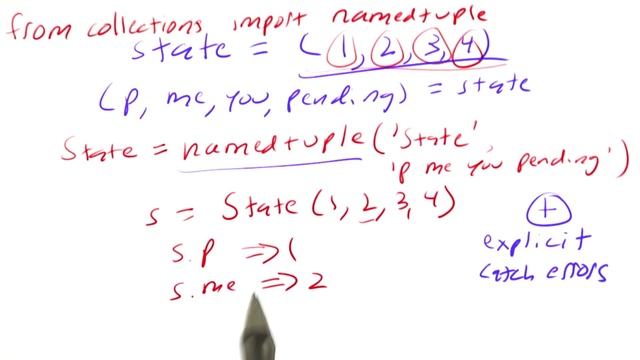 from collections import namedtuple
state = (1, 2, 3, 4)
(p, me, you, pending) = state
State = namedtuple('State',
'p me you pending')
s = State(1, 2, 3, 4)
s.p => 1
s.me => 2
+
explicit
catch errors